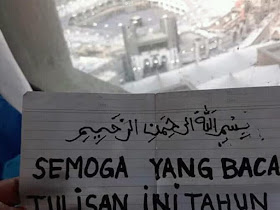 بِسْمِ اللَّهِ الرَّحْمَنِ الرَّحِيمِ
SEMOGA YANG BACA
TULISAN INI TAHUN